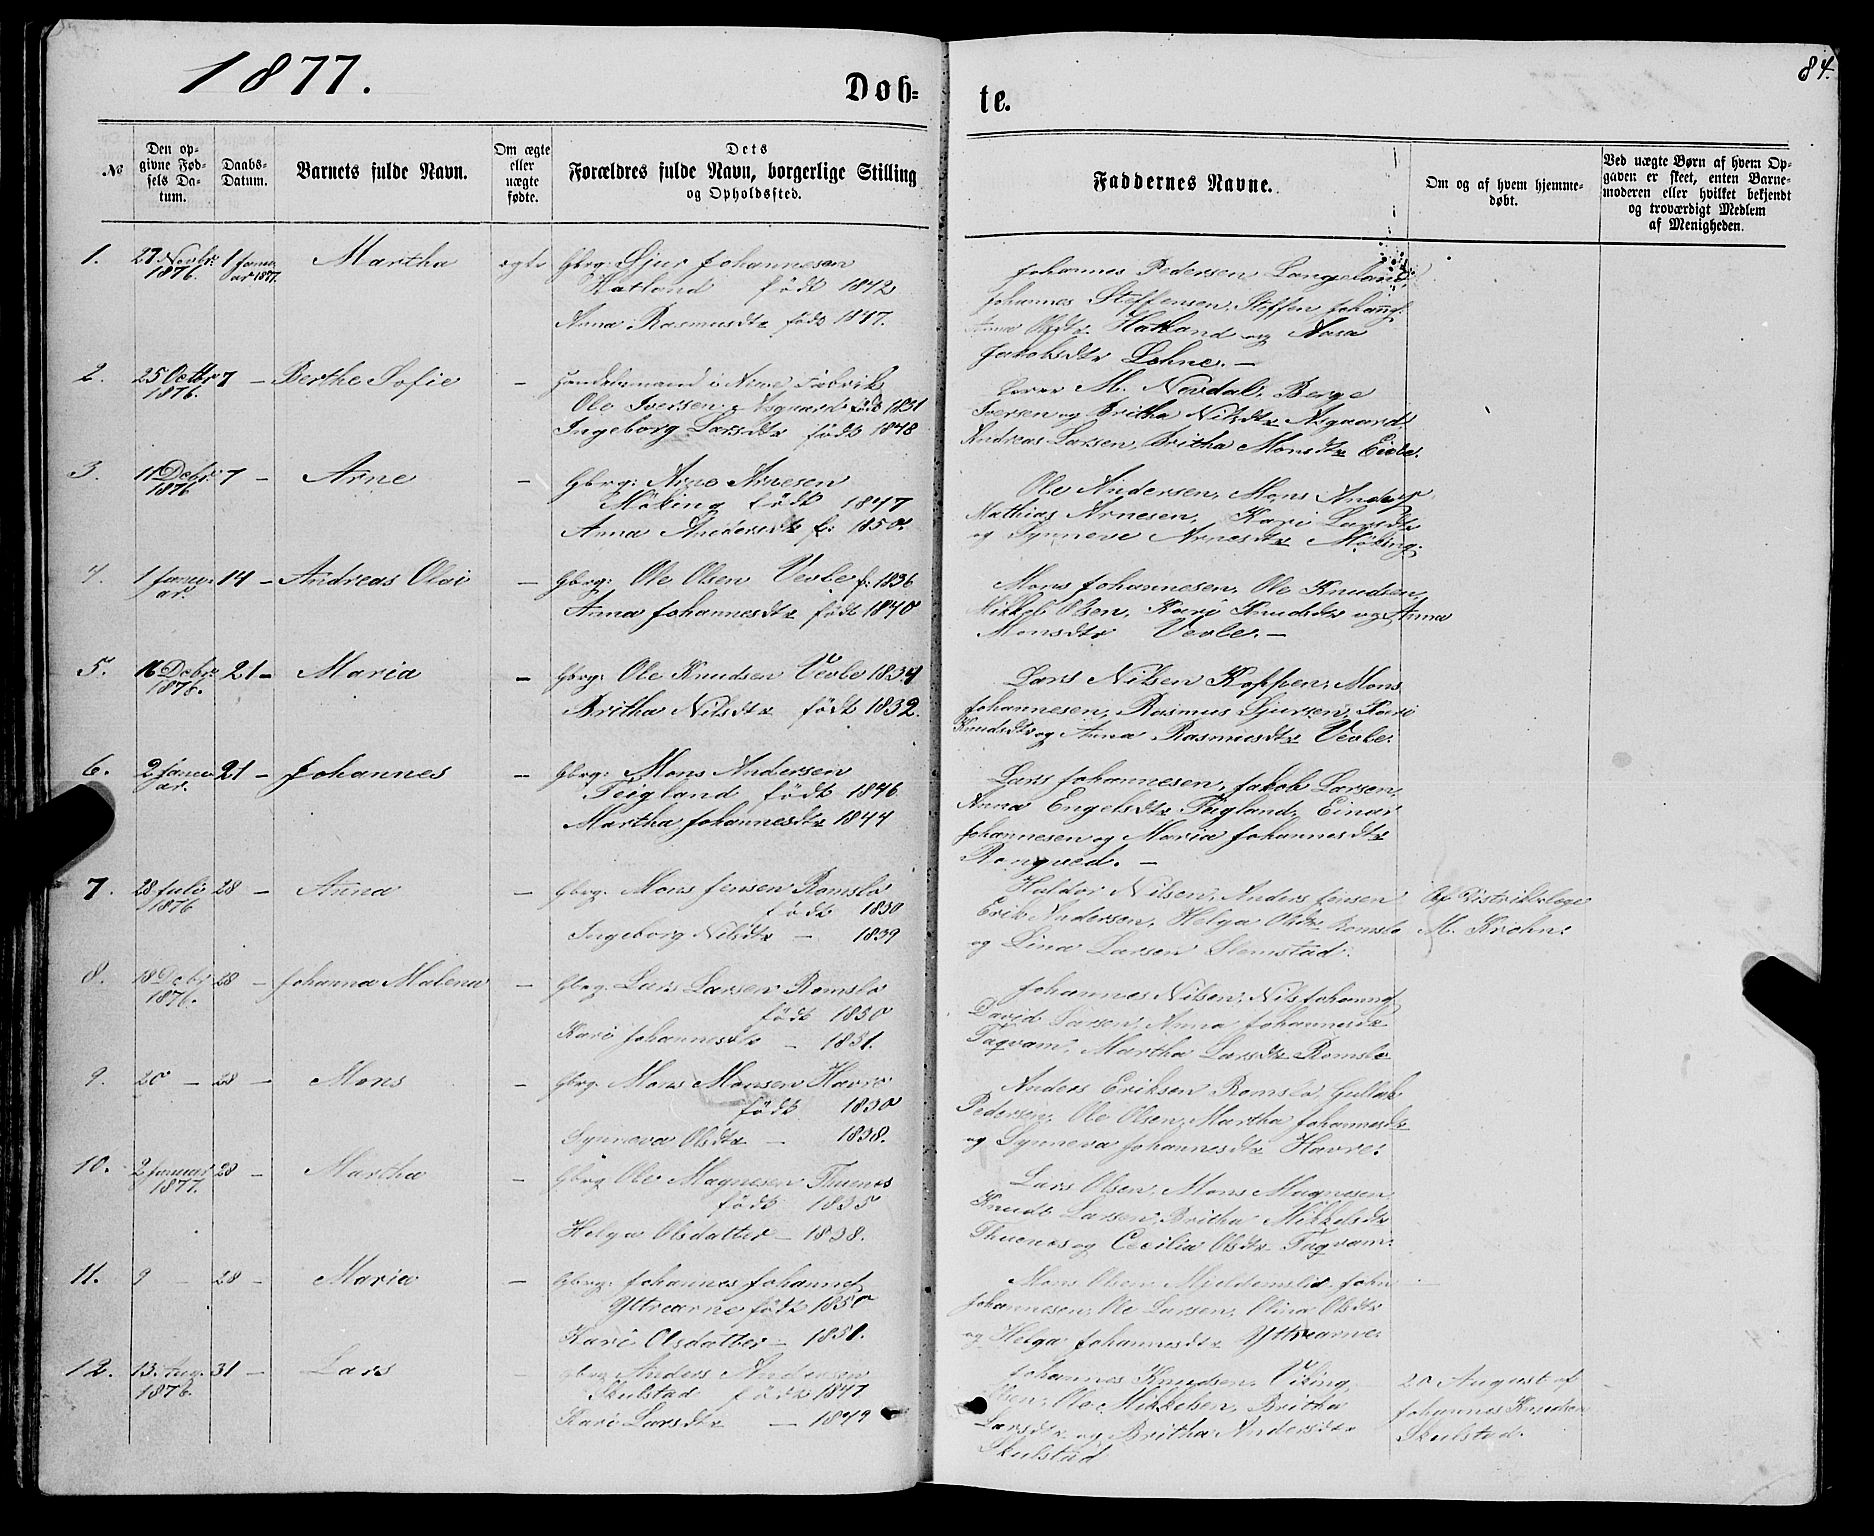 1877.
Døb=
te.
84.
№
Den op-
givne Fød-
sels Da-
tum.
Daabs-
Datum.
Barnets fulde Navn.
Om ægte
eller
uægte
fødte.
Dets
Forældres fulde Navn, borgerlige Stilling
og Opholdssted.
Faddernes Navne.
Om og af hvem hjemme-
døbt.
Ved uægte Børn af hvem Op-
gaven er skeet, enten Barne-
moderen eller hvilket bekjendt
og troværdigt Medlem
af Menigheden.
1. 27 Novbr: 1876. 1 Janu- ar 1877. Martha ægte
Gbrg: Sjur Johannesen
Hatland født 1842
Anna Rasmusdtr født 1847.
Johannes Pedersen Langeland,
Johannes Steffensen, Steffen
Anna Olsdtr Hatland og
Jakobsdtr Lohne. —
2. 25 Octbr 1876. 7 — Berthe Sofie —
Handelsmand i Arne Fabrik
Ole Iversen Asgaard født 1831
Ingeborg Larsdtr født 1848
Lærer M. Nevdal, Berge
Iversen og Britha Nilsdtr Asgaard,
Andreas Larsen, Britha Monsdtr
3. 11 Decbr: 1876 7 — Arne —
Gbrg: Arne Arnesen
født 1847
Anna Andersdtr f: 1850.
Ole Andersen, Mons
Mathias Arnesen, Kari Larsdtr
og Synneve Arnesdtr
4. 1 Janu- ar. 14 — Andreas Olai —
Gbrg: Ole Olsen Vevle f: 1836
Anna Johannesdtr født 1840
Mons Johannesen, Ole Knudsen,
Mikkel Olsen, Kari Knudsdtr og Anna
Monsdtr Vevle. —
5. 16 Decbr: 1876. 21 — Maria —
Gbrg: Ole Knudsen Vevle 1834
Britha Nilsdtr født 1832.
Lars Nilsen Koppen, Mons
Johannesen, Rasmus Sjursen, Kari
Knudsdtr og Anna Rasmusdtr Vevle.
6. 2 Janu- ar. 21 — Johannes —
Gbrg: Mons Andersen
Teigland født 1846
Martha Johannesdtr 1844
Lars Johannesen, Jakob Larsen,
Anna Engelsdtr Teigland, Einar
Johannesen og Maria Johannesdtr
Rongved. —
7. 28 Juli 1876 28 — Anna —
Gbrg: Mons Jensen Romslo
født 1830
Ingeborg Nilsdtr — 1839
Haldor Nilsen, Anders Jensen
Erik Andersen, Helga Olsdtr Romslo
og Lina Larsen Stemstad.
Af Distriktslege
M. Krohn.
8. 18 Decbr 1876. 28 — Johanna Malena —
Gbrg: Lars Larsen Romslo
født 1850
Kari Johannesdtr — 1851.
Johannes Nilsen, Nils
David Larsen, Anna Johannesdtr
Taqvam, Martha Larsdtr Romslo
9. 20 — 28 — Mons —
Gbrg: Mons Monsen Havre
født 1830
Synneva Olsdtr — 1838.
Anders Eriksen Romslo, Gullak
Pedersen, Ole Olsen, Martha Johannesdtr
og Synneva Johannesdtr Havre.
10. 2 Januar 1877. 28 — Martha —
Gbrg Ole Magnesen Thuenes
født 1835
Helga Olsdatter — 1838.
Lars Olsen, Mons Magnesen
Knudt Larsen, Britha Mikkelsdtr
Thuenes og Cecilia Olsdtr Taqvam.
11. 9 — 28 — Maria —
Gbrg: Johannes
Ytrearne født 1850
Kari Olsdatter — 1851.
Mons Olsen
Johannesen, Ole Larsen, Olina Olsdtr
og Helga Johannesdtr Ytrearne
12. 13. Aug. 1876. 31 — Lars —
Gbrg Anders Andersen
Skulstad født 1847
Kari Larsdtr — 1849
Johannes Knudsen, Viking
Olsen, Ole Mikkelsen, Britha
Larsdtr og Britha Andersdtr
Skulstad
20 August af
Johannes Knudsen
Skulstad.